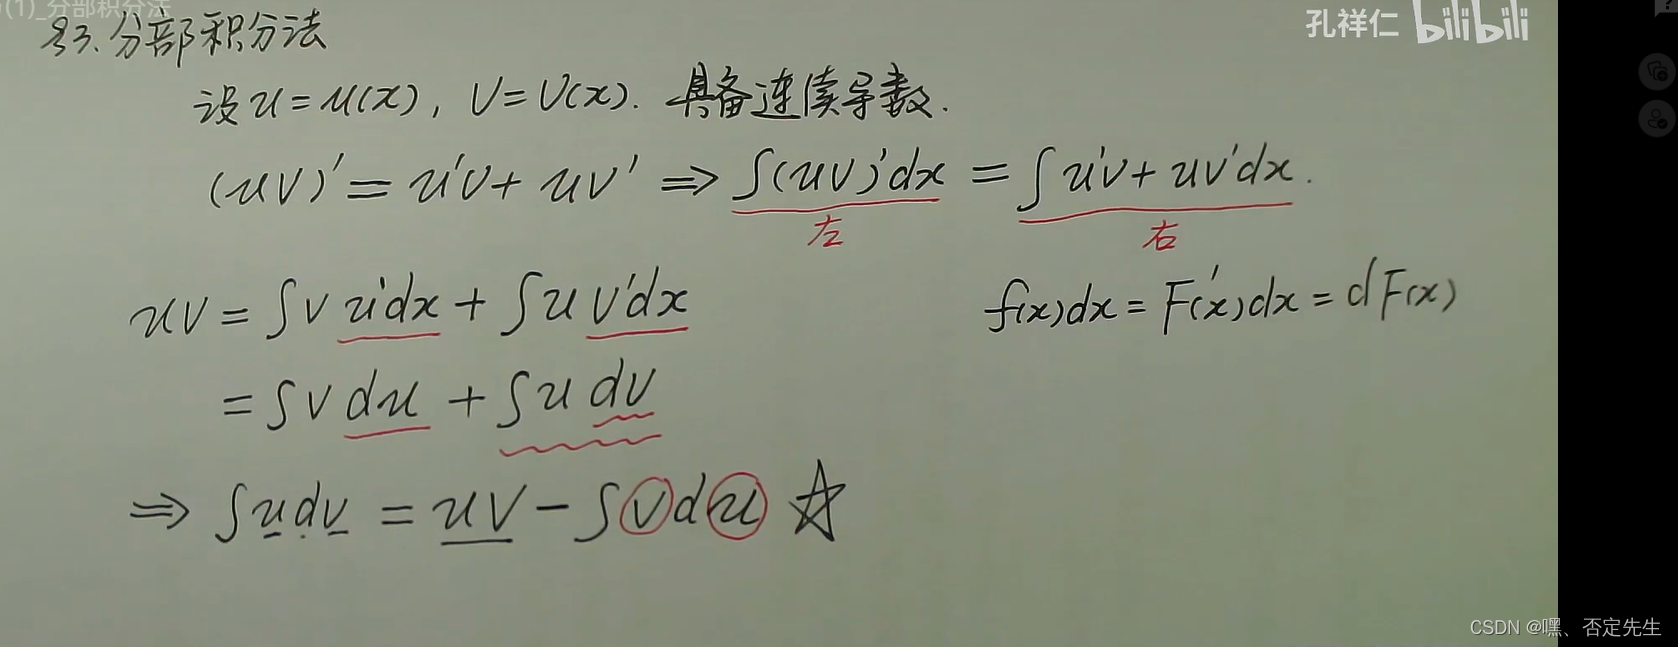 (1)_分部积分法
孔祥仁 bilibili
§3.分部积分法
设u=u(x),V=V(x). 具备连续导数.
(uV)'=u'v+uv' ⇒ ∫(uv)'dx = ∫u'v+uv'dx.
左 右
uV=∫v u'dx + ∫u v'dx
f(x)dx = F'(x)dx = dF(x)
=∫v du + ∫u dv
⇒ ∫u dv = uV - ∫v du ☆
CSDN @嘿、否定先生